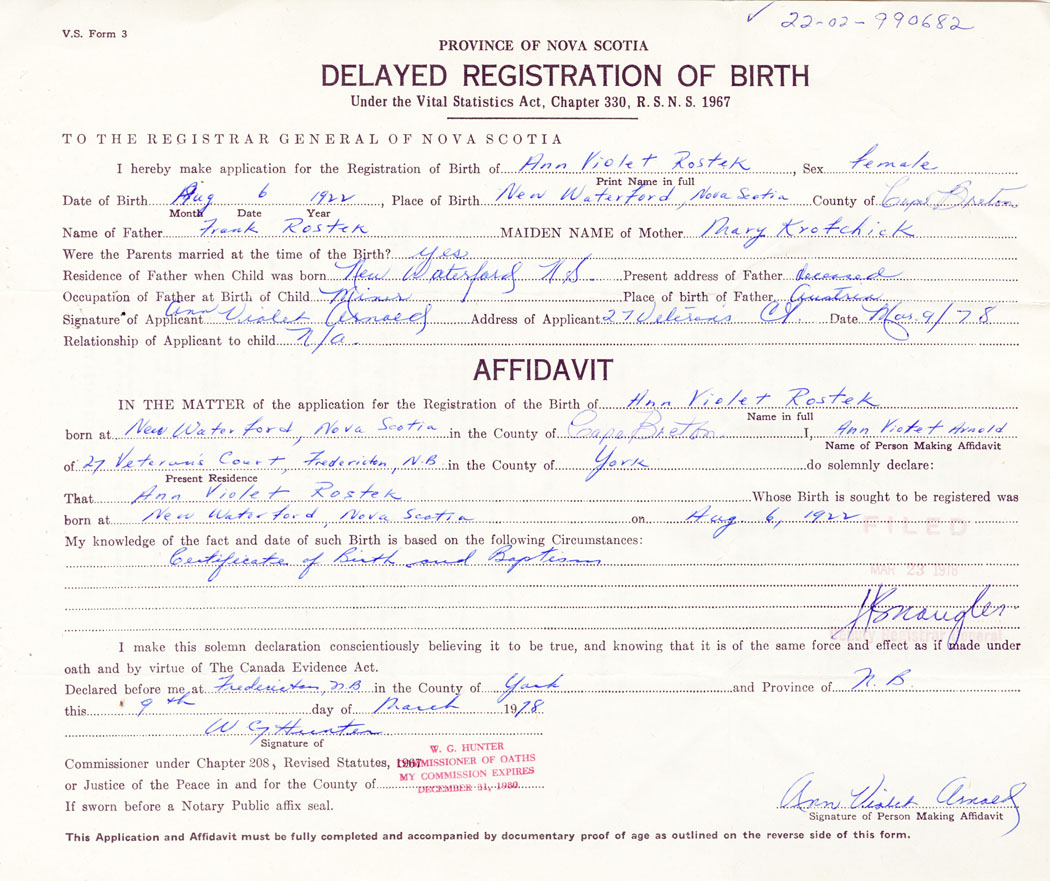 22-02-990682
V.S. Form 3
PROVINCE OF NOVA SCOTIA
DELAYED REGISTRATION OF BIRTH
Under the Vital Statistics Act, Chapter 330, R. S. N. S. 1967
TO THE REGISTRAR GENERAL OF NOVA SCOTIA
I hereby make application for the Registration of Birth of Ann Violet Rostek, Sex female
Print Name in full
Date of Birth Aug 6 1922, Place of Birth New Waterford, Nova Scotia County of Cape Breton
Month Date Year
Name of Father Frank Rostek MAIDEN NAME of Mother Mary Krotchick
Were the Parents married at the time of the Birth? yes
Residence of Father when Child was born New Waterford N.S. Present address of Father deceased
Occupation of Father at Birth of Child Miner Place of birth of Father Austria
Signature of Applicant Ann Violet Arnold Address of Applicant 27 Veteran's Ct. Date Mar. 9/78
Relationship of Applicant to child N/a.
AFFIDAVIT
IN THE MATTER of the application for the Registration of the Birth of Ann Violet Rostek
Name in full
born at New Waterford, Nova Scotia in the County of Cape Breton I, Ann Violet Arnold
Name of Person Making Affidavit
of 27 Veteran's Court, Fredericton, N.B. in the County of York do solemnly declare:
Present Residence
That Ann Violet Rostek Whose Birth is sought to be registered was
born at New Waterford, Nova Scotia on Aug. 6, 1922
FILED
My knowledge of the fact and date of such Birth is based on the following Circumstances:
Certificate of Birth and Baptism
MAR 23 1978
Deputy Registrar General
I make this solemn declaration conscientiously believing it to be true, and knowing that it is of the same force and effect as if made under
oath and by virtue of The Canada Evidence Act.
Declared before me at Fredericton, N.B. in the County of York and Province of N.B.
this 9th day of March 1978
W G Hunter
Signature of
Commissioner under Chapter 208, Revised Statutes, 1967
or Justice of the Peace in and for the County of
If sworn before a Notary Public affix seal.
W. G. HUNTER
COMMISSIONER OF OATHS
MY COMMISSION EXPIRES
DECEMBER 31, 1980
Ann Violet Arnold
Signature of Person Making Affidavit
This Application and Affidavit must be fully completed and accompanied by documentary proof of age as outlined on the reverse side of this form.